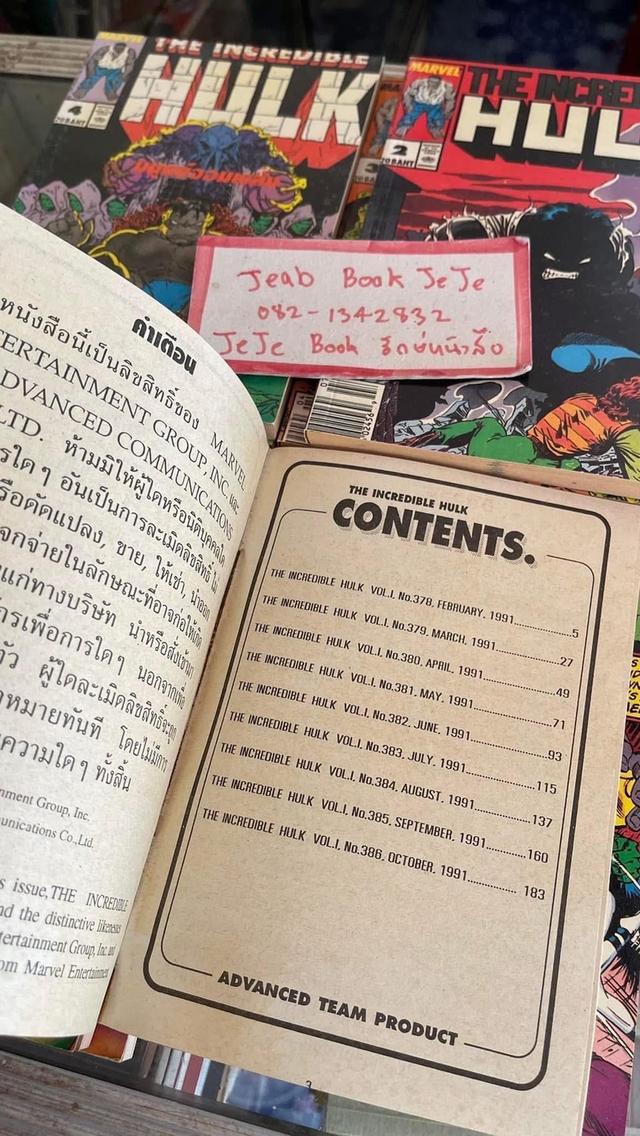 MARVEL
THE INCREDIBLE
HULK
4
20BAHT
MARVEL
THE INCRED
HUL
2
20BAHT
3
Jeab Book JeJe
082-1342832
JeJe Book
คำเตือน
หนังสือนี้เป็นลิขสิทธิ์ของ MARVEL
ERTAINMENT GROUP, INC. และ
ADVANCED COMMUNICATIONS
LTD. ห้ามมิให้ผู้ใดหรือนิติบุคคลใด
ใดๆ อันเป็นการละเมิดลิขสิทธิ์ ไม่
รือดัดแปลง, ขาย, ให้เช่า, นำออก
จกจ่ายในลักษณะที่อาจก่อให้เกิด
แก่ทางบริษัท นำหรือสั่งเข้ามา
เพื่อการใดๆ นอกจากเพื่อ
ตัว ผู้ใดละเมิดลิขสิทธิ์จะถูก
หมายทันที โดยไม่มีการ
ความใดๆ ทั้งสิ้น
nment Group, Inc.
munications Co.,Ltd.
s issue,THE INCREDIBLE
nd the distinctive likenesses
tertainment Group, Inc. and
om Marvel Entertainment
THE INCREDIBLE HULK
CONTENTS.
THE INCREDIBLE HULK VOL.I, No.378, FEBRUARY, 1991...............5
THE INCREDIBLE HULK VOL.I, No.379, MARCH, 1991...............27
THE INCREDIBLE HULK VOL.I, No.380, APRIL, 1991...............49
THE INCREDIBLE HULK VOL.I, No.381, MAY, 1991...............71
THE INCREDIBLE HULK VOL.I, No.382, JUNE, 1991...............93
THE INCREDIBLE HULK VOL.I, No.383, JULY, 1991...............115
THE INCREDIBLE HULK VOL.I, No.384, AUGUST, 1991...............137
THE INCREDIBLE HULK VOL.I, No.385, SEPTEMBER, 1991...........160
THE INCREDIBLE HULK VOL.I, No.386, OCTOBER, 1991............... 183
ADVANCED TEAM PRODUCT
3